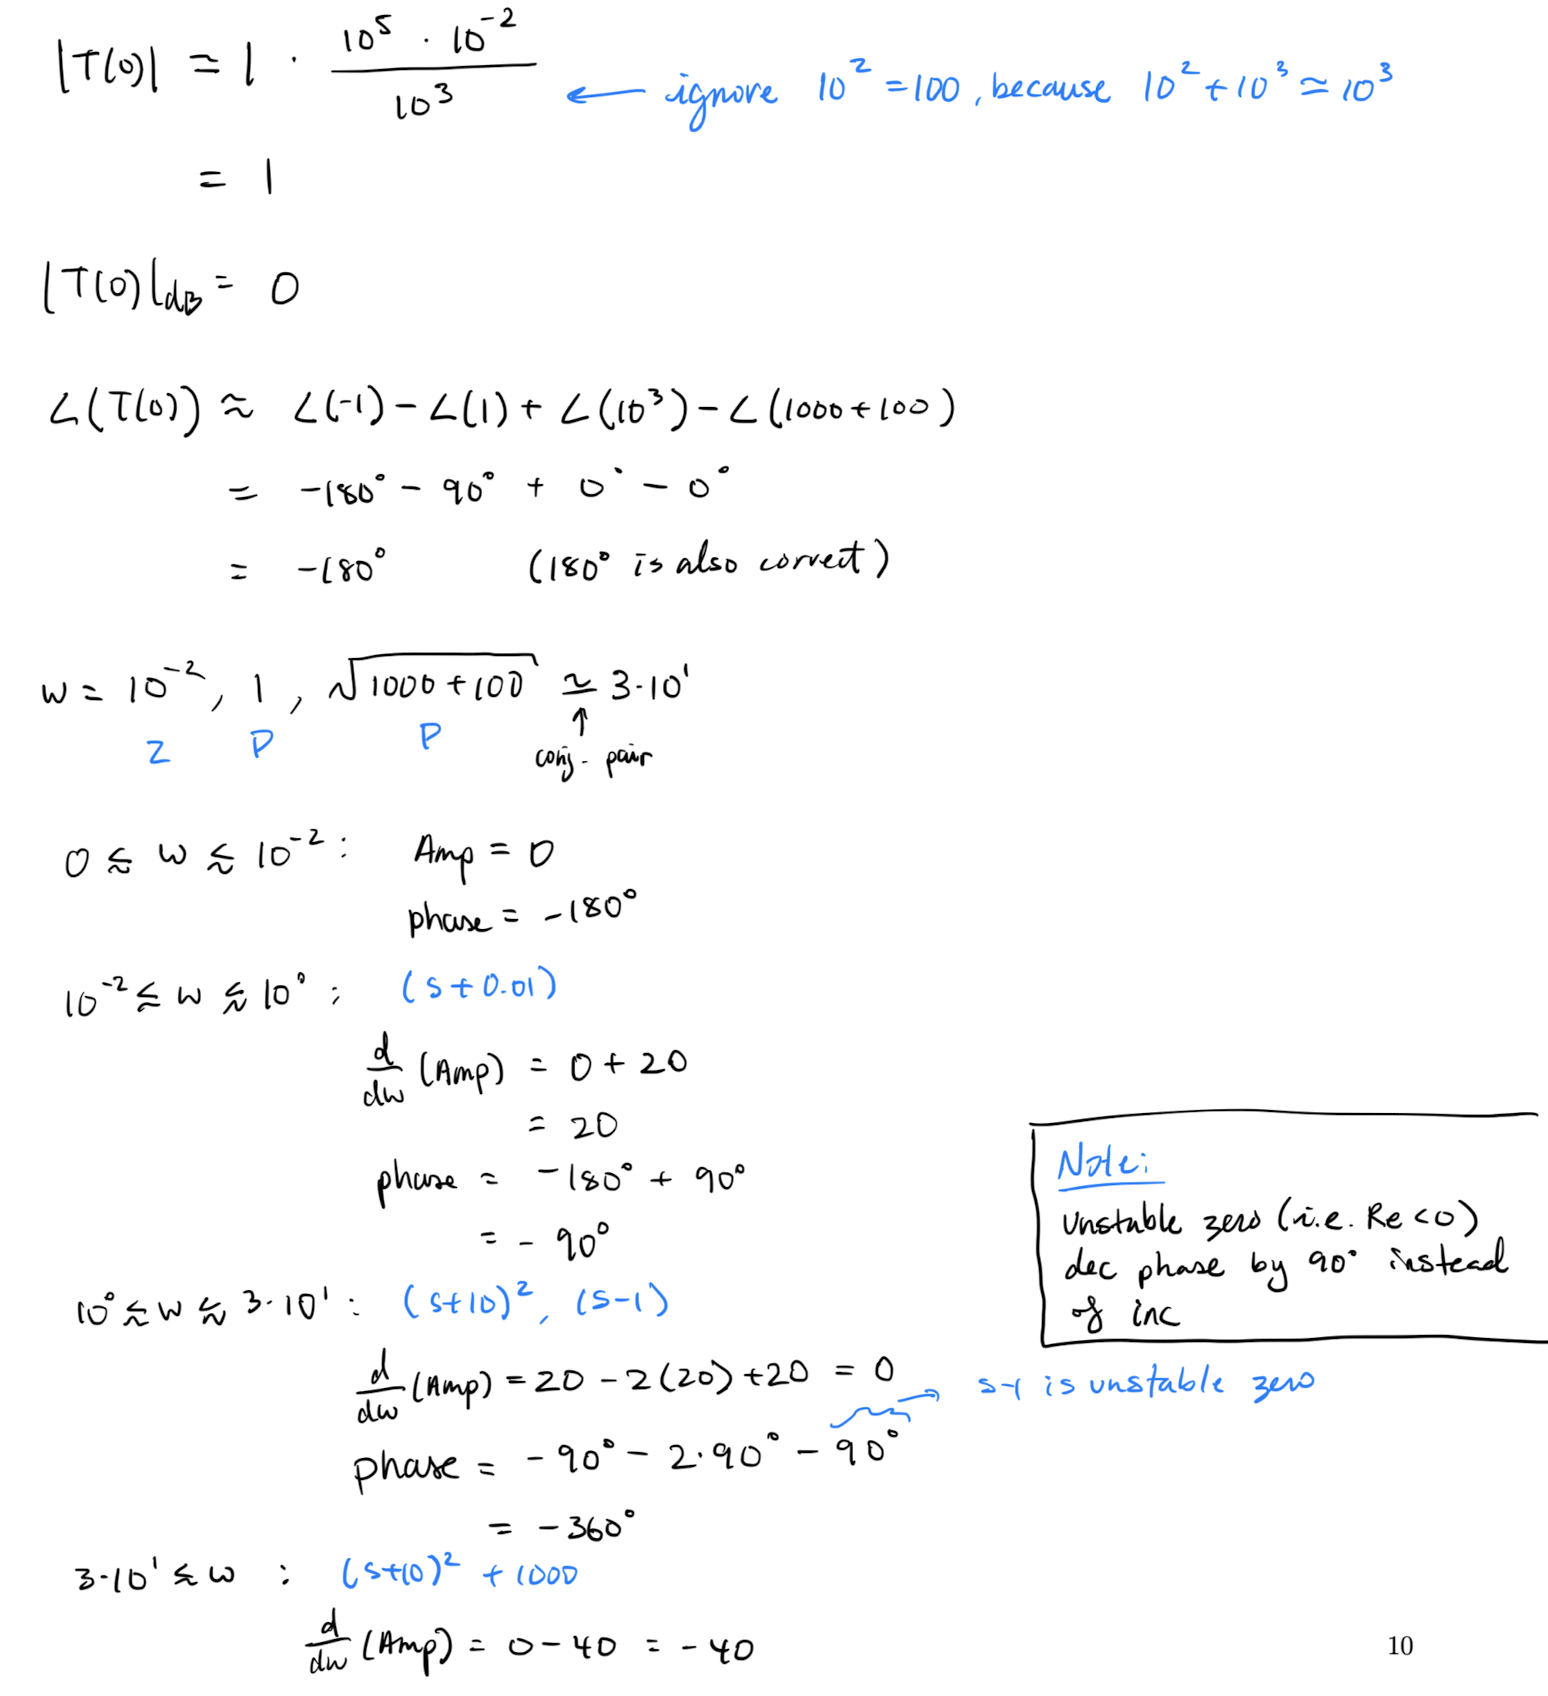 |T(0)| ≃ 1 · (10^5 · 10^-2)/10^3 ← ignore 10^2 = 100, because 10^2 + 10^3 ≃ 10^3
= 1
|T(0)|dB = 0
∠(T(0)) ≈ ∠(-1) - ∠(1) + ∠(10^3) - ∠(1000 + 100)
= -180° - 90° + 0° - 0°
= -180° (180° is also correct)
w = 10^-2, 1, √(1000 + 100) ≃ 3·10^1
Z P P ↑
conj. pair
0 ⪅ w ⪅ 10^-2 : Amp = 0
phase = -180°
10^-2 ⪅ w ⪅ 10^0 : (s + 0.01)
d/dw (Amp) = 0 + 20
= 20
phase = -180° + 90°
= -90°
Note:
Unstable zero (i.e. Re < 0)
dec phase by 90° instead
of inc
10^0 ⪅ w ⪅ 3·10^1 : (s+10)^2, (s-1)
d/dw (Amp) = 20 - 2(20) + 20 = 0 → s-1 is unstable zero
phase = -90° - 2·90° - 90°
= -360°
3·10^1 ⪅ w : (s+10)^2 + 1000
d/dw (Amp) = 0 - 40 = -40
10